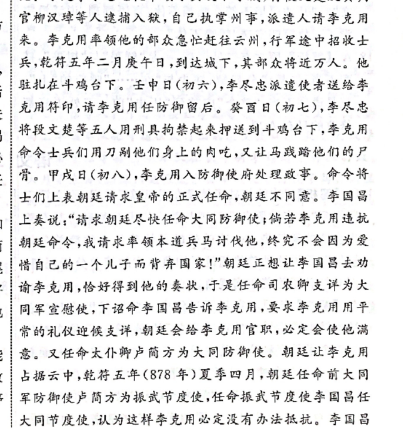 官柳汉璋等人逮捕入狱，自己执掌州事，派遣人请李克用
来。李克用率领他的部众急忙赶往云州，行军途中招收士
兵，乾符五年二月庚午日，到达城下，其部众将近万人。他
驻扎在斗鸡台下。壬申日（初六），李尽忠派遣使者送给李
克用符印，请李克用任防御留后。癸酉日（初七），李尽忠
将段文楚等五人用刑具拘禁起来押送到斗鸡台下，李克用
命令士兵们用刀剐他们身上的肉吃，又让马践踏他们的尸
骨。甲戌日（初八），李克用入防御使府处理政事。命令将
士们上表朝廷请求皇帝的正式任命，朝廷不同意。李国昌
上奏说：“请求朝廷尽快任命大同防御使；倘若李克用违抗
朝廷命令，我请求率领本道兵马讨伐他，终究不会因为爱
惜自己的一个儿子而背弃国家！”朝廷正想让李国昌去劝
谕李克用，恰好得到他的奏状，于是任命司农卿支详为大
同军宣慰使，下诏命李国昌告诉李克用，要求李克用用平
常的礼仪迎候支详，朝廷会给李克用官职，必定会使他满
意。又任命太仆卿卢简方为大同防御使。朝廷让李克用
占据云中，乾符五年（878 年）夏季四月，朝廷任命前大同
军防御使卢简方为振武节度使，任命振武节度使李国昌任
大同节度使，认为这样李克用必定没有办法抵抗。李国昌